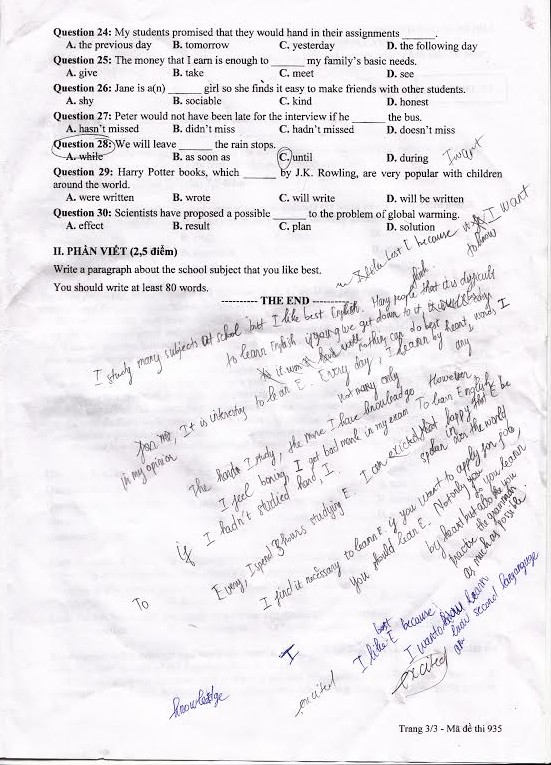 Question 24: My students promised that they would hand in their assignments ______.
A. the previous day B. tomorrow C. yesterday D. the following day
Question 25: The money that I earn is enough to ______ my family's basic needs.
A. give B. take C. meet D. see
Question 26: Jane is a(n) ______ girl so she finds it easy to make friends with other students.
A. shy B. sociable C. kind D. honest
Question 27: Peter would not have been late for the interview if he ______ the bus.
A. hasn't missed B. didn't miss C. hadn't missed D. doesn't miss
Question 28: We will leave ______ the rain stops.
A. while B. as soon as C. until D. during
I want
Question 29: Harry Potter books, which ______ by J.K. Rowling, are very popular with children
around the world.
A. were written B. wrote C. will write D. will be written
Question 30: Scientists have proposed a possible ______ to the problem of global warming.
A. effect B. result C. plan D. solution
I want
to know
II. PHẦN VIẾT (2,5 điểm)
Write a paragraph about the school subject that you like best.
You should write at least 80 words.
---------- THE END ----------
I study many subjects at school but I like best English. Many people that it is difficult
to learn English if
nothing can do best
It is interesting to learn E. Every day, I learn by heart words I
in my opinion
not many only any
The harder I study, the more I have knowledge. However
I feel boring I got bad mark in my exam To learn English
if I hadn't studied hard, I
Every, I spend 3 hours studying E. I am excited that happy that E be
spoken in over the world
I find it necessary to learn E. if you want to apply for job,
you should learn E. Not only you learn
by heart but also the you
practise the grammar
as much as possible
To
I
I like E because
best
I want to know learn
second language
excited
excited
knowledge
Trang 3/3 - Mã đề thi 935